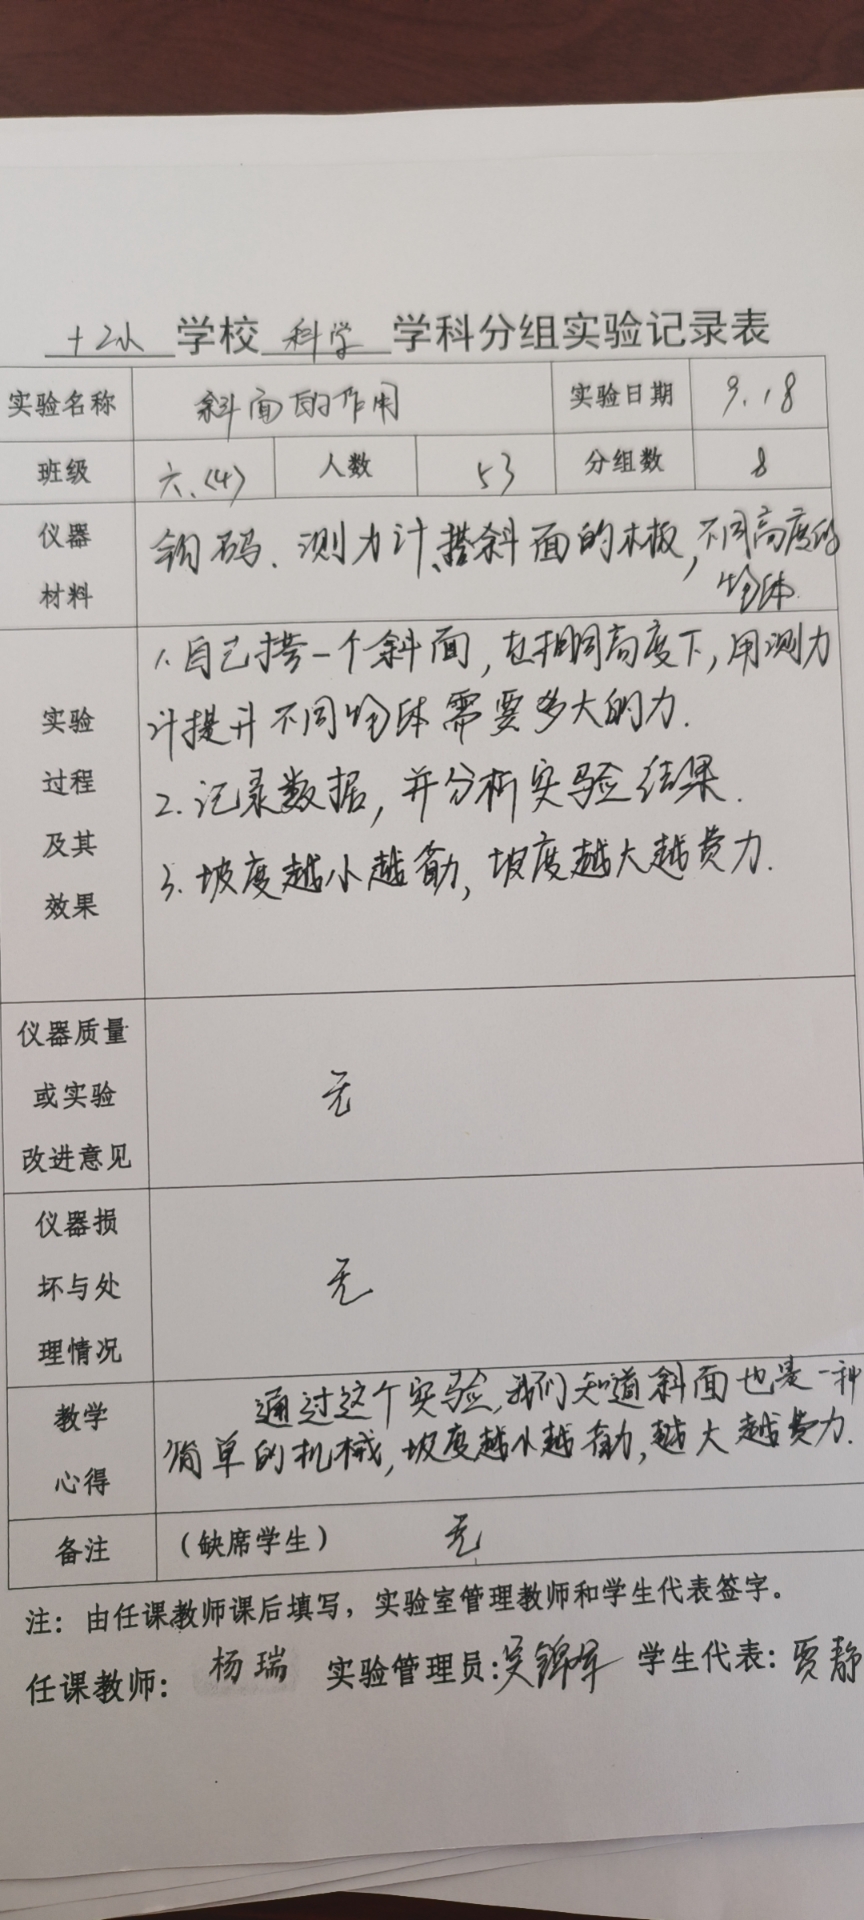 十二小学校科学学科分组实验记录表
实验名称 斜面的作用 实验日期 9.18
班级 六.(4) 人数 53 分组数 8
仪器
材料
钩码、测力计、搭斜面的木板,不同高度的
物体.
实验
过程
及其
效果
1.自己搭一个斜面,在相同高度下,用测力
计提升不同物体需要多大的力.
2.记录数据,并分析实验结果.
3.坡度越小越省力,坡度越大越费力.
仪器质量
或实验
改进意见
无
仪器损
坏与处
理情况
无
教学
心得
通过这个实验,我们知道斜面也是一种
简单的机械,坡度越小越省力,越大越费力.
备注 (缺席学生) 无
注:由任课教师课后填写,实验室管理教师和学生代表签字。
任课教师: 杨瑞 实验管理员:吴锦军 学生代表:贾静